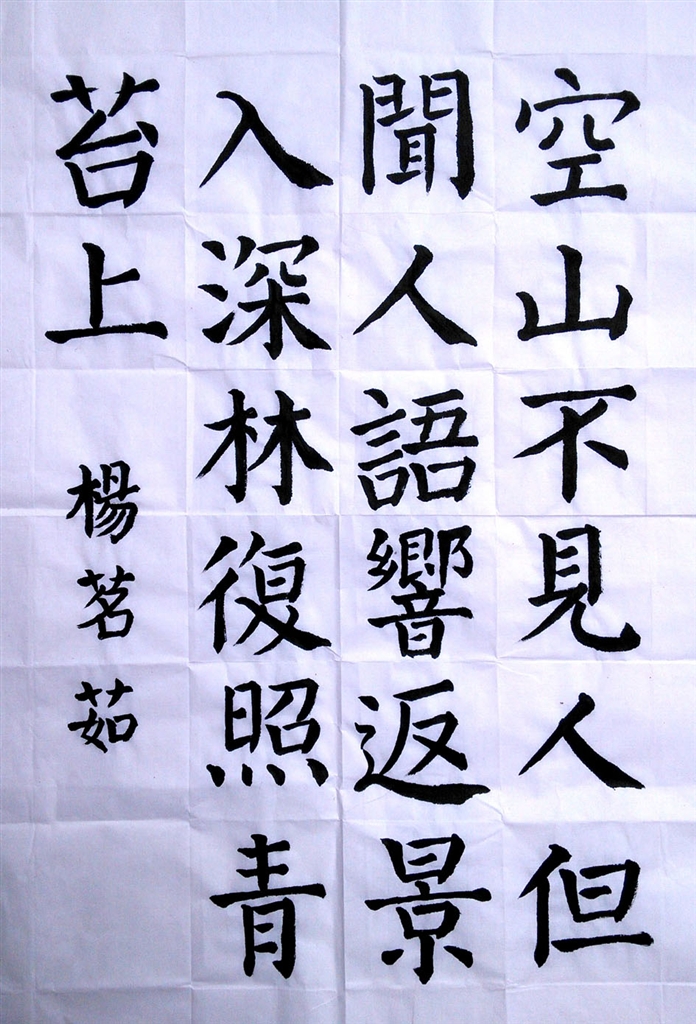 空山不見人但
聞人語響返景
入深林復照青
苔上
楊茗茹